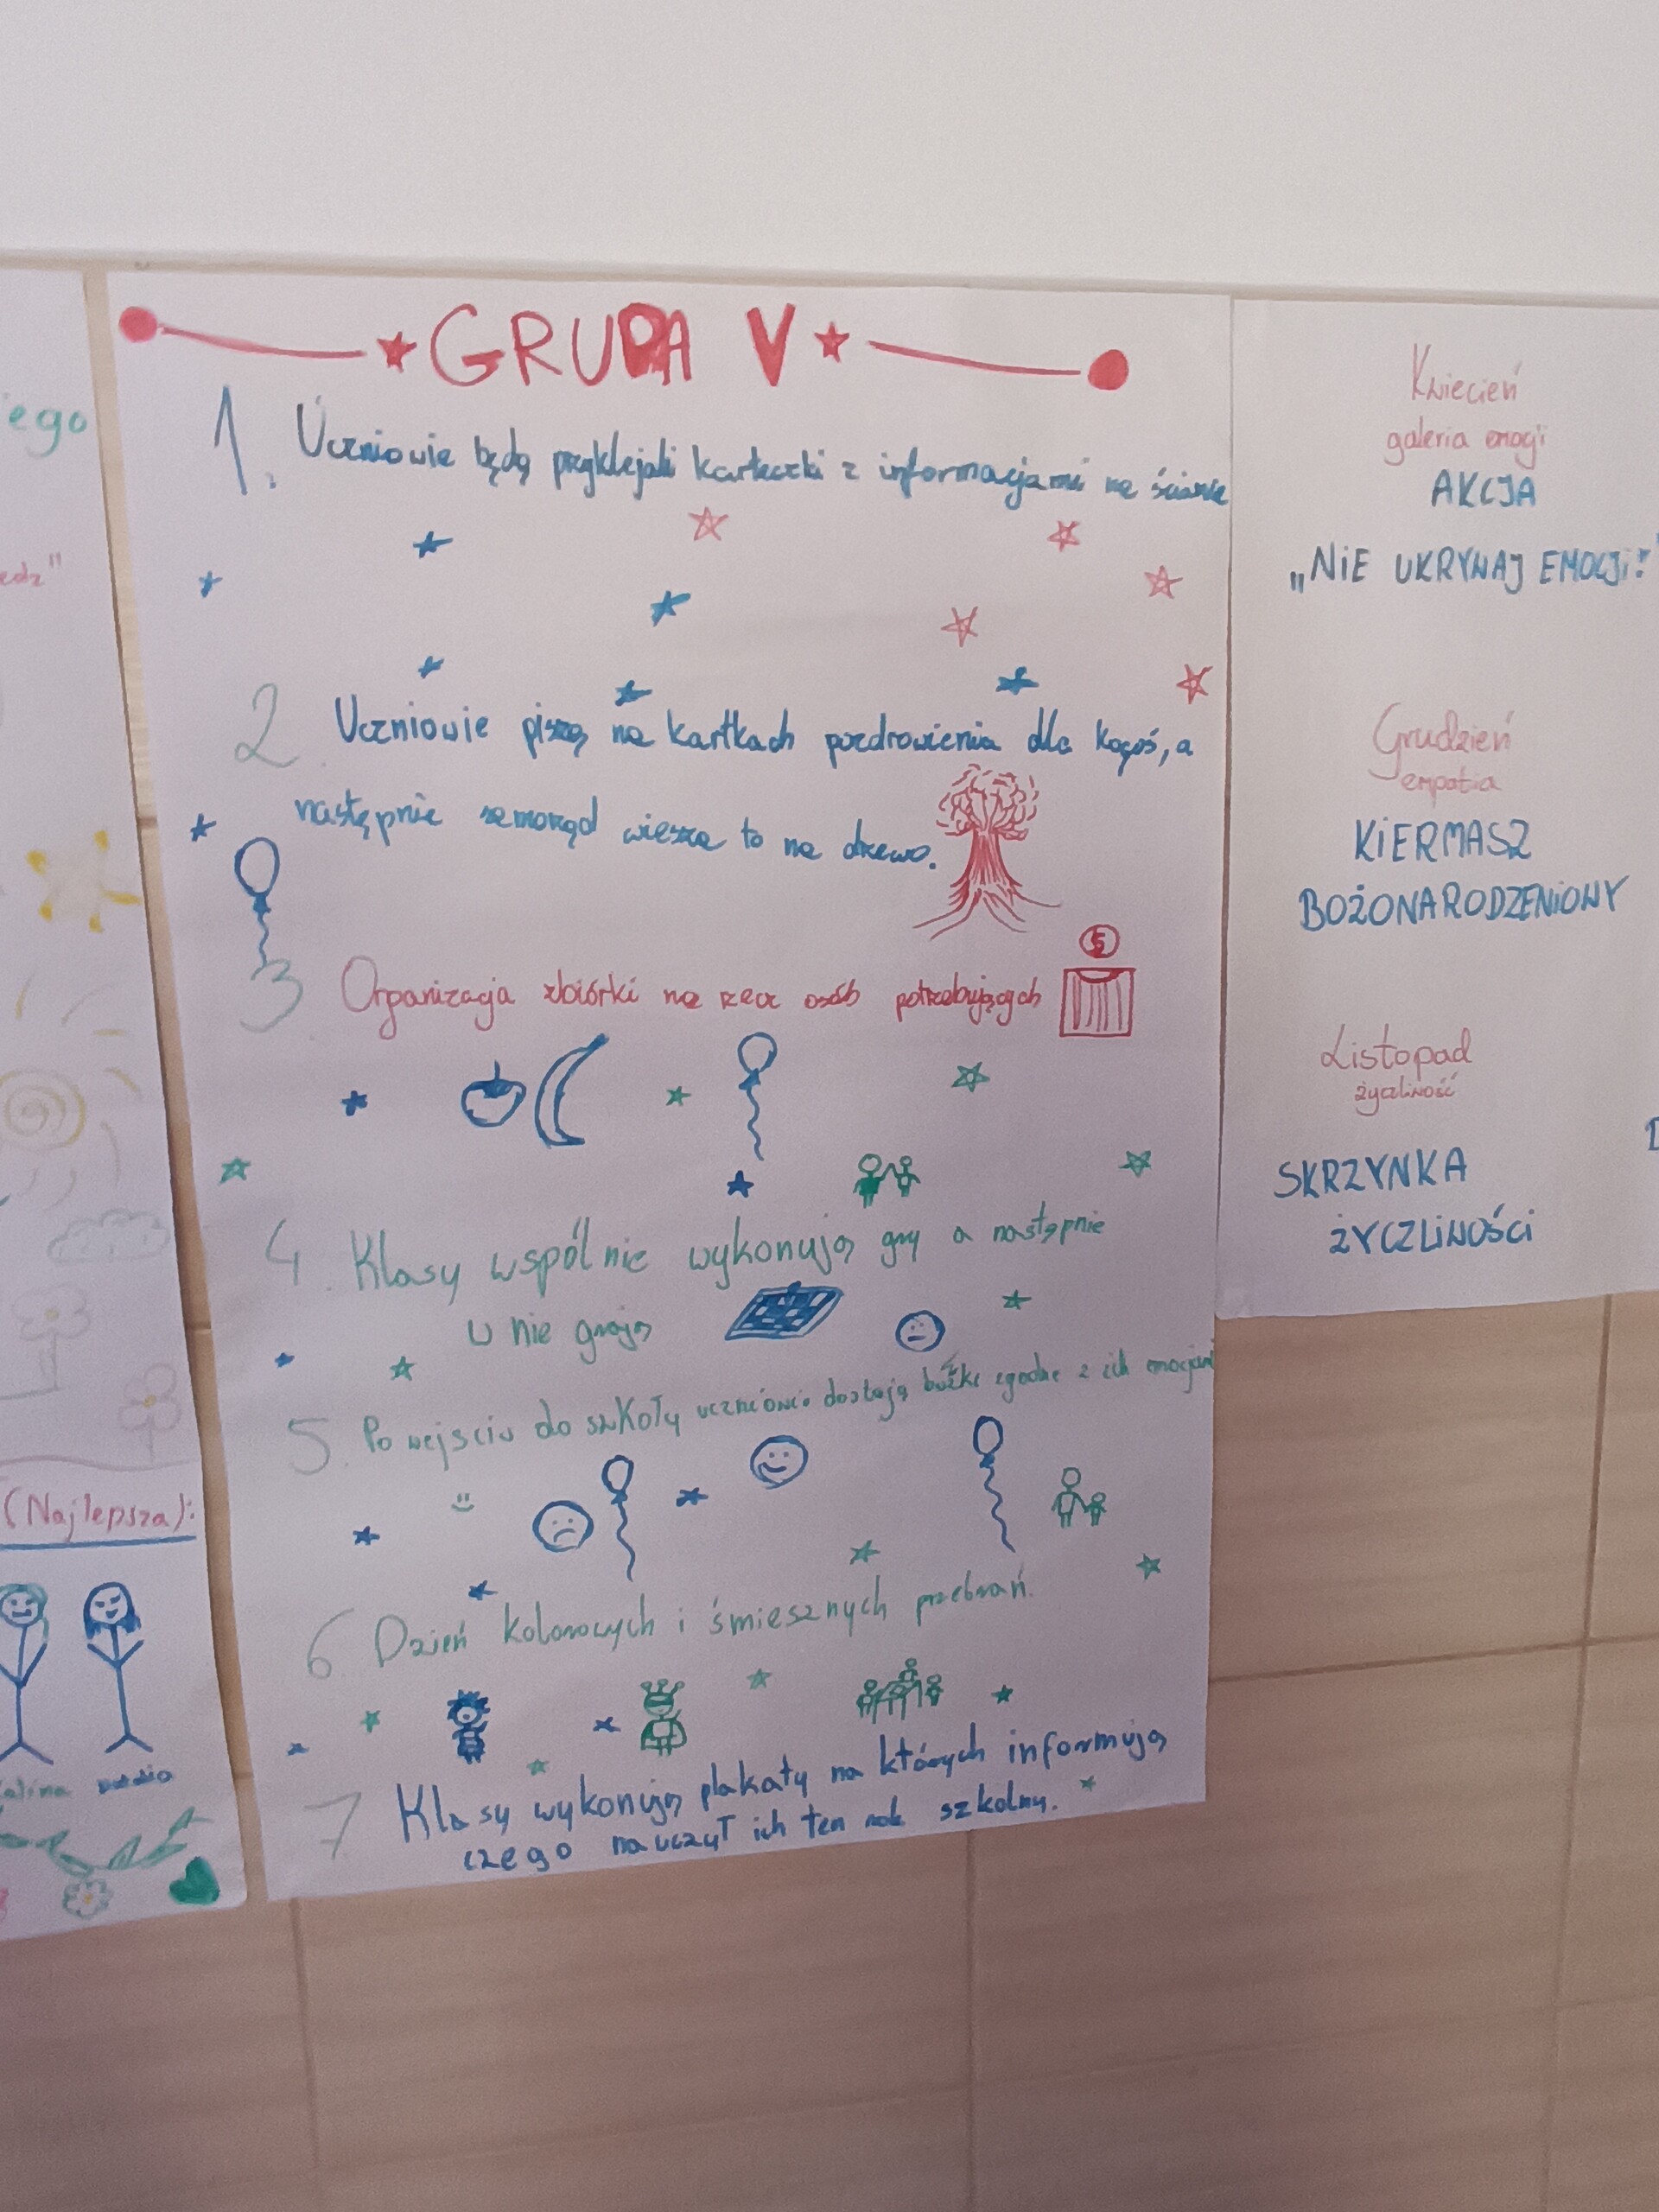 GRUPA V
1. Uczniowie będą przyklejali karteczki z informacjami na ścianie
2. Uczniowie piszą na kartkach pozdrowienia dla kogoś, a
następnie samorząd wiesza to na drzewo.
3 Organizacja zbiórki na rzecz osób potrzebujących
4. Klasy wspólnie wykonują gry a następnie
w nie grają
5. Po wejściu do szkoły uczniowie dostają buźki zgodne z ich emocjami
6. Dzień kolorowych i śmiesznych przebrań.
7 Klasy wykonują plakaty na których informują
czego nauczył ich ten rok szkolny.
Kwiecień
galeria emocji
AKCJA
„NIE UKRYWAJ EMOCJI!"
Grudzień
empatia
KIERMASZ
BOŻONARODZENIOWY
Listopad
życzliwość
SKRZYNKA
ŻYCZLIWOŚCI
(Najlepsza):